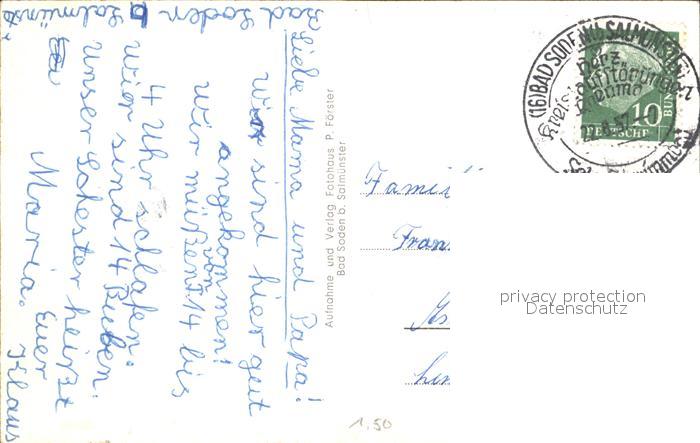 Bad Soden
Salmünst.
Liebe Mama und Papa!
Wir sind hier gut
angekommen!
wir müßen von 14 bis
4 Uhr schlafen.
Wir sind 14 Buben.
Unser Schester heißt
Maria. Euer
Klaus
Aufnahme und Verlag Fotohaus P. Förster
Bad Soden b. Salmünster
(16) BAD SODEN ü. SALMÜNSTER
Herz
Kreislaufstörungen
Rheuma
10
DEUTSCHE BUN
Famil
Fran
privacy protection
Datenschutz
1,50